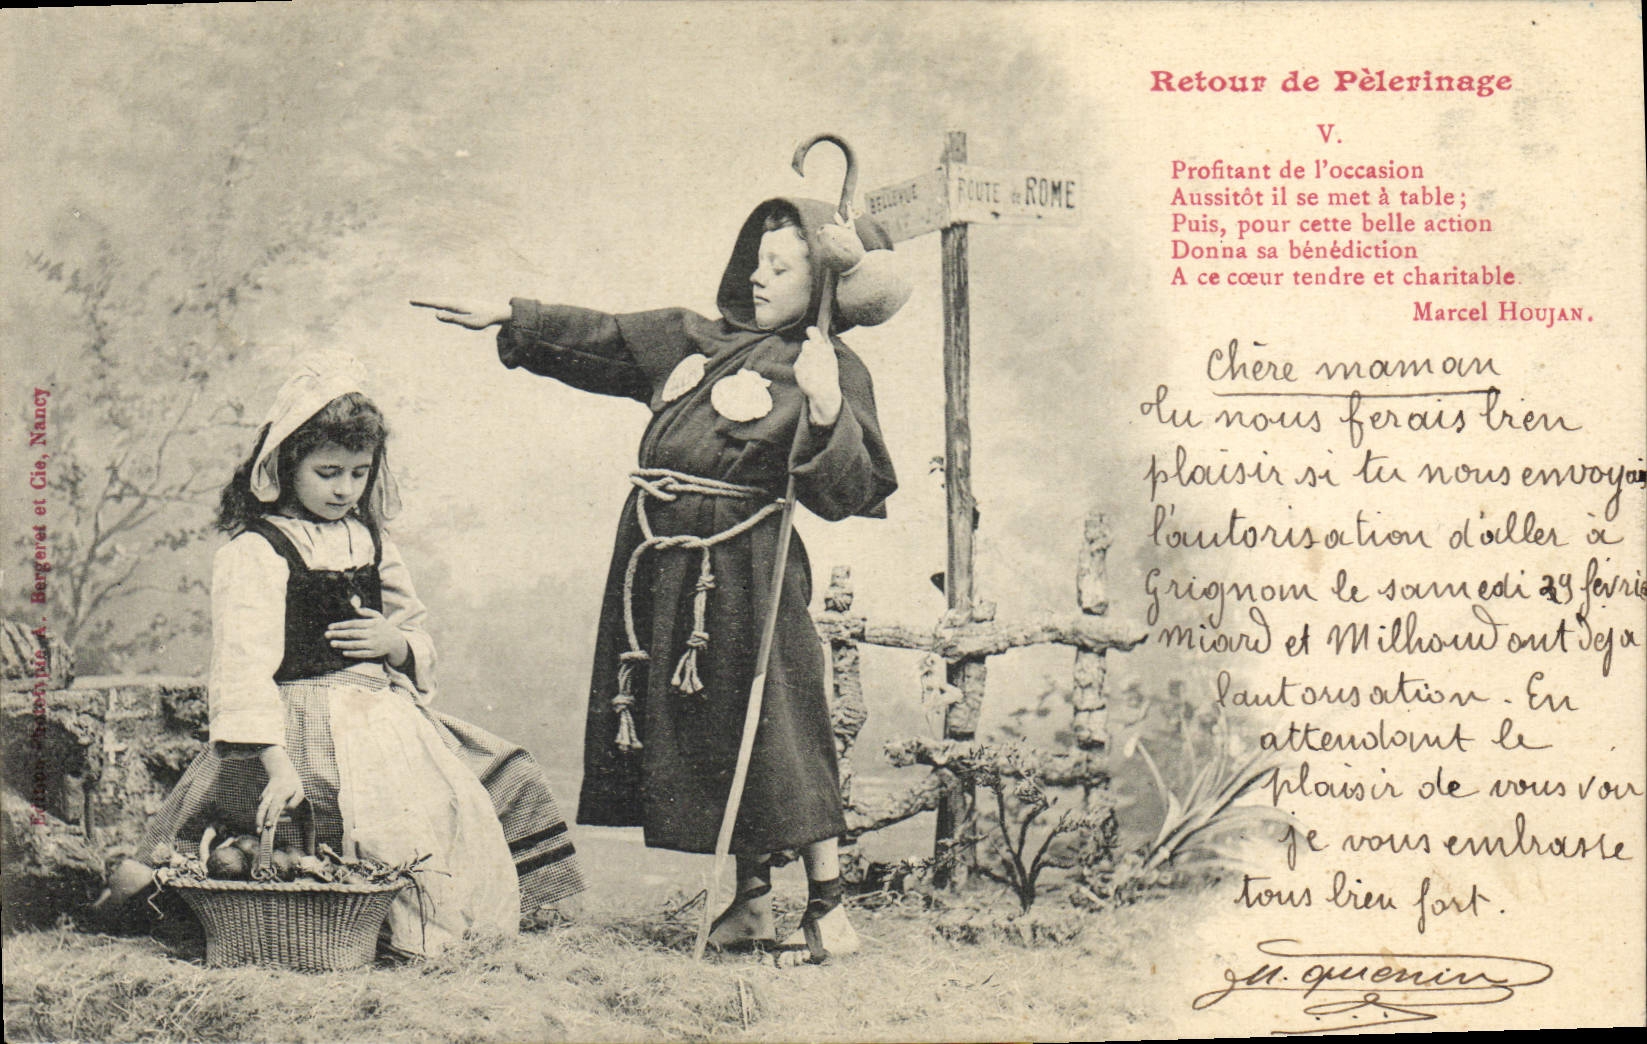 Retour de Pèlerinage
V.
Profitant de l'occasion
Aussitôt il se met à table ;
Puis, pour cette belle action
Donna sa bénédiction
A ce cœur tendre et charitable.
Marcel HOUJAN.
BELLEVUE
ROUTE de ROME
Chère maman
Tu nous ferais bien
plaisir si tu nous envoyais
l'autorisation d'aller à
Grignon le samedi 29 février
Miard et Milhoud ont deja
l'autorisation. En
attendant le
plaisir de vous voir
je vous embrasse
tous bien fort.
Quenin
Edition Phototypie A. Bergeret et Cie, Nancy